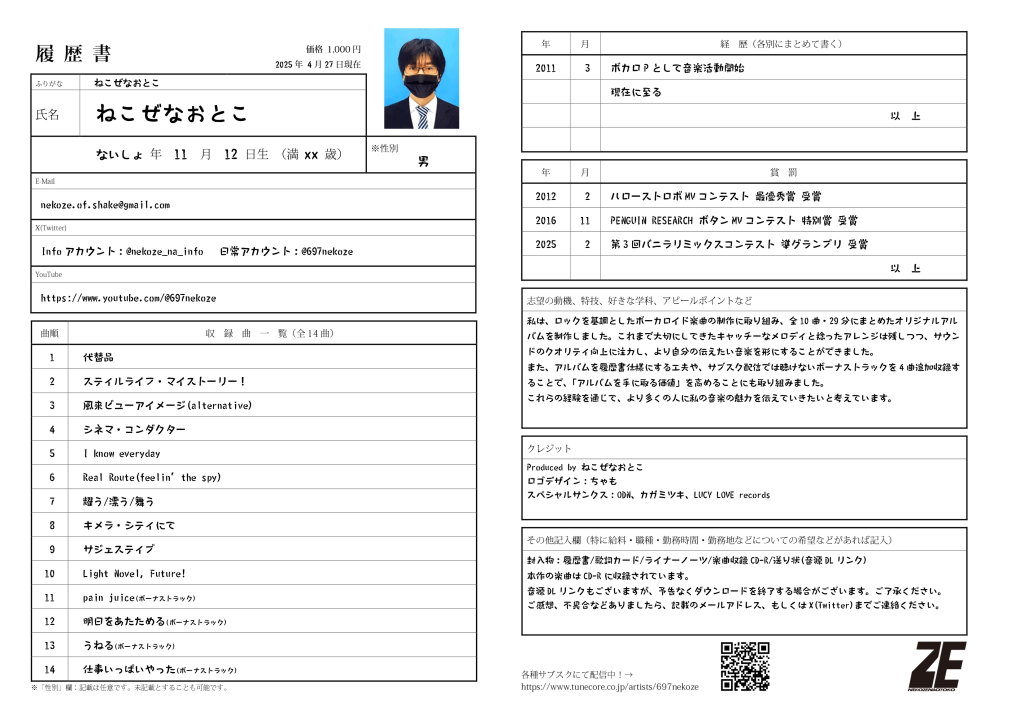 履歴書
価格 1,000円
2025年 4月27日現在
ふりがな ねこぜなおとこ
氏名 ねこぜなおとこ
ないしょ 年 11 月 12 日生 (満 xx 歳)
※性別
男
E-Mail
nekoze.of.shake@gmail.com
X(Twitter)
Info アカウント：@nekoze_na_info 日常アカウント：@697nekoze
YouTube
https://www.youtube.com/@697nekoze
曲順 収録曲一覧（全14曲）
1 代替品
2 スティルライフ・マイストーリー！
3 風来ビューアイメージ(alternative)
4 シネマ・コンダクター
5 I know everyday
6 Real Route(feelin' the spy)
7 耀う/漂う/舞う
8 キメラ・シティにて
9 サジェスティブ
10 Light Novel, Future!
11 pain juice(ボーナストラック)
12 明日をあたためる(ボーナストラック)
13 うねる(ボーナストラック)
14 仕事いっぱいやった(ボーナストラック)
※「性別」欄：記載は任意です。未記載とすることも可能です。
年 月 経 歴（各別にまとめて書く）
2011 3 ボカロPとして音楽活動開始
現在に至る
以 上
年 月 賞 罰
2012 2 ハローストロボMVコンテスト 最優秀賞 受賞
2016 11 PENGUIN RESEARCH ボタンMVコンテスト 特別賞 受賞
2025 2 第3回バニラリミックスコンテスト 準グランプリ 受賞
以 上
志望の動機、特技、好きな学科、アピールポイントなど
私は、ロックを基調としたボーカロイド楽曲の制作に取り組み、全10曲・29分にまとめたオリジナルアル
バムを制作しました。これまで大切にしてきたキャッチーなメロディと捻ったアレンジは残しつつ、サウン
ドのクオリティ向上に注力し、より自分の伝えたい音楽を形にすることができました。
また、アルバムを履歴書仕様にする工夫や、サブスク配信では聴けないボーナストラックを4曲追加収録す
ることで、「アルバムを手に取る価値」を高めることにも取り組みました。
これらの経験を通じて、より多くの人に私の音楽の魅力を伝えていきたいと考えています。
クレジット
Produced by ねこぜなおとこ
ロゴデザイン：ちゃも
スペシャルサンクス：ODW、カガミツキ、LUCY LOVE records
その他記入欄（特に給料・職種・勤務時間・勤務地などについての希望などがあれば記入）
封入物：履歴書/歌詞カード/ライナーノーツ/楽曲収録CD-R/送り状(音源DLリンク)
本作の楽曲はCD-Rに収録されています。
音源DLリンクもございますが、予告なくダウンロードを終了する場合がございます。ご了承ください。
ご感想、不具合などありましたら、記載のメールアドレス、もしくはX(Twitter)までご連絡ください。
各種サブスクにて配信中！→
https://www.tunecore.co.jp/artists/697nekoze
ZE
NEKOZENAOTOKO